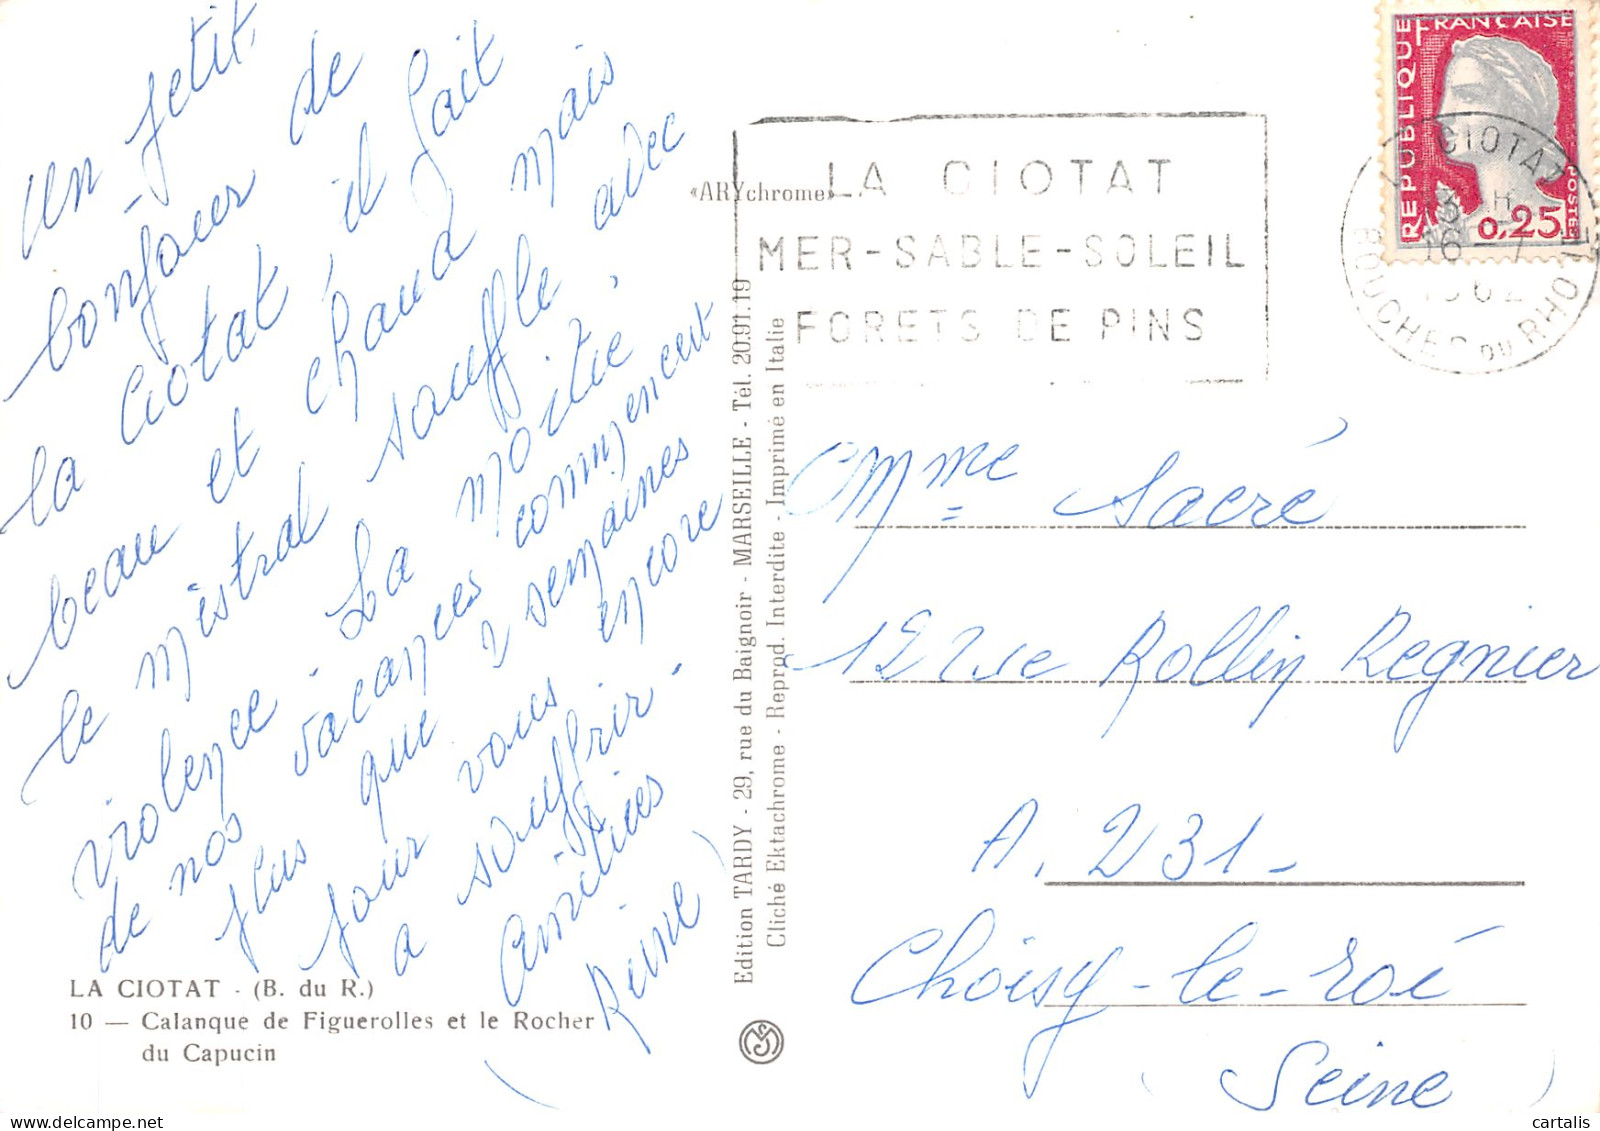 Un petit
bonjour de
la Ciotat il fait
beau et chaud mais
le mistral souffle avec
violence. La moitié
de nos vacances commencent
plus que 2 semaines
pour vous encore
a souffrir.
Amitiés
(Reine)
LA CIOTAT - (B. du R.)
10 — Calanque de Figuerolles et le Rocher
du Capucin
«ARYchrome»
Edition TARDY - 29, rue du Baignoir - MARSEILLE - Tél. 20.91.19
Cliché Ektachrome - Reprod. Interdite - Imprimé en Italie
LA CIOTAT
MER-SABLE-SOLEIL
FORETS DE PINS
REPUBLIQUE FRANÇAISE
POSTES
0,25F
LA CIOTAT
16 - 7
1962
BOUCHES DU RHONE
Mme Sacré
12 rue Rollin Regnier
A. 231-
Choisy-le-roi
(Seine)
cartalis